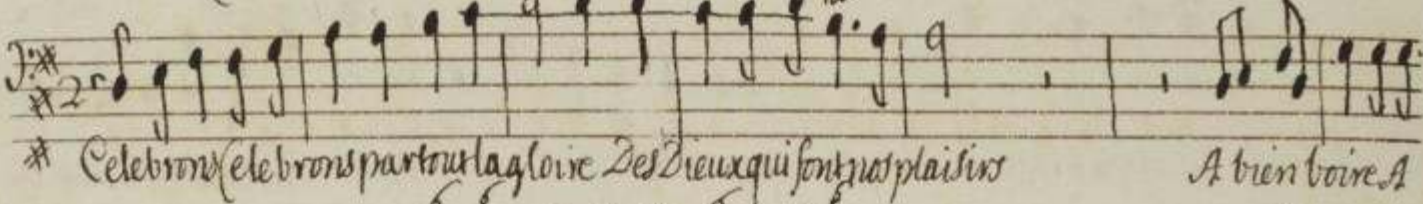 Celebrons Celebrons partout la gloire Des Dieux qui font nos plaisirs A bien boire A